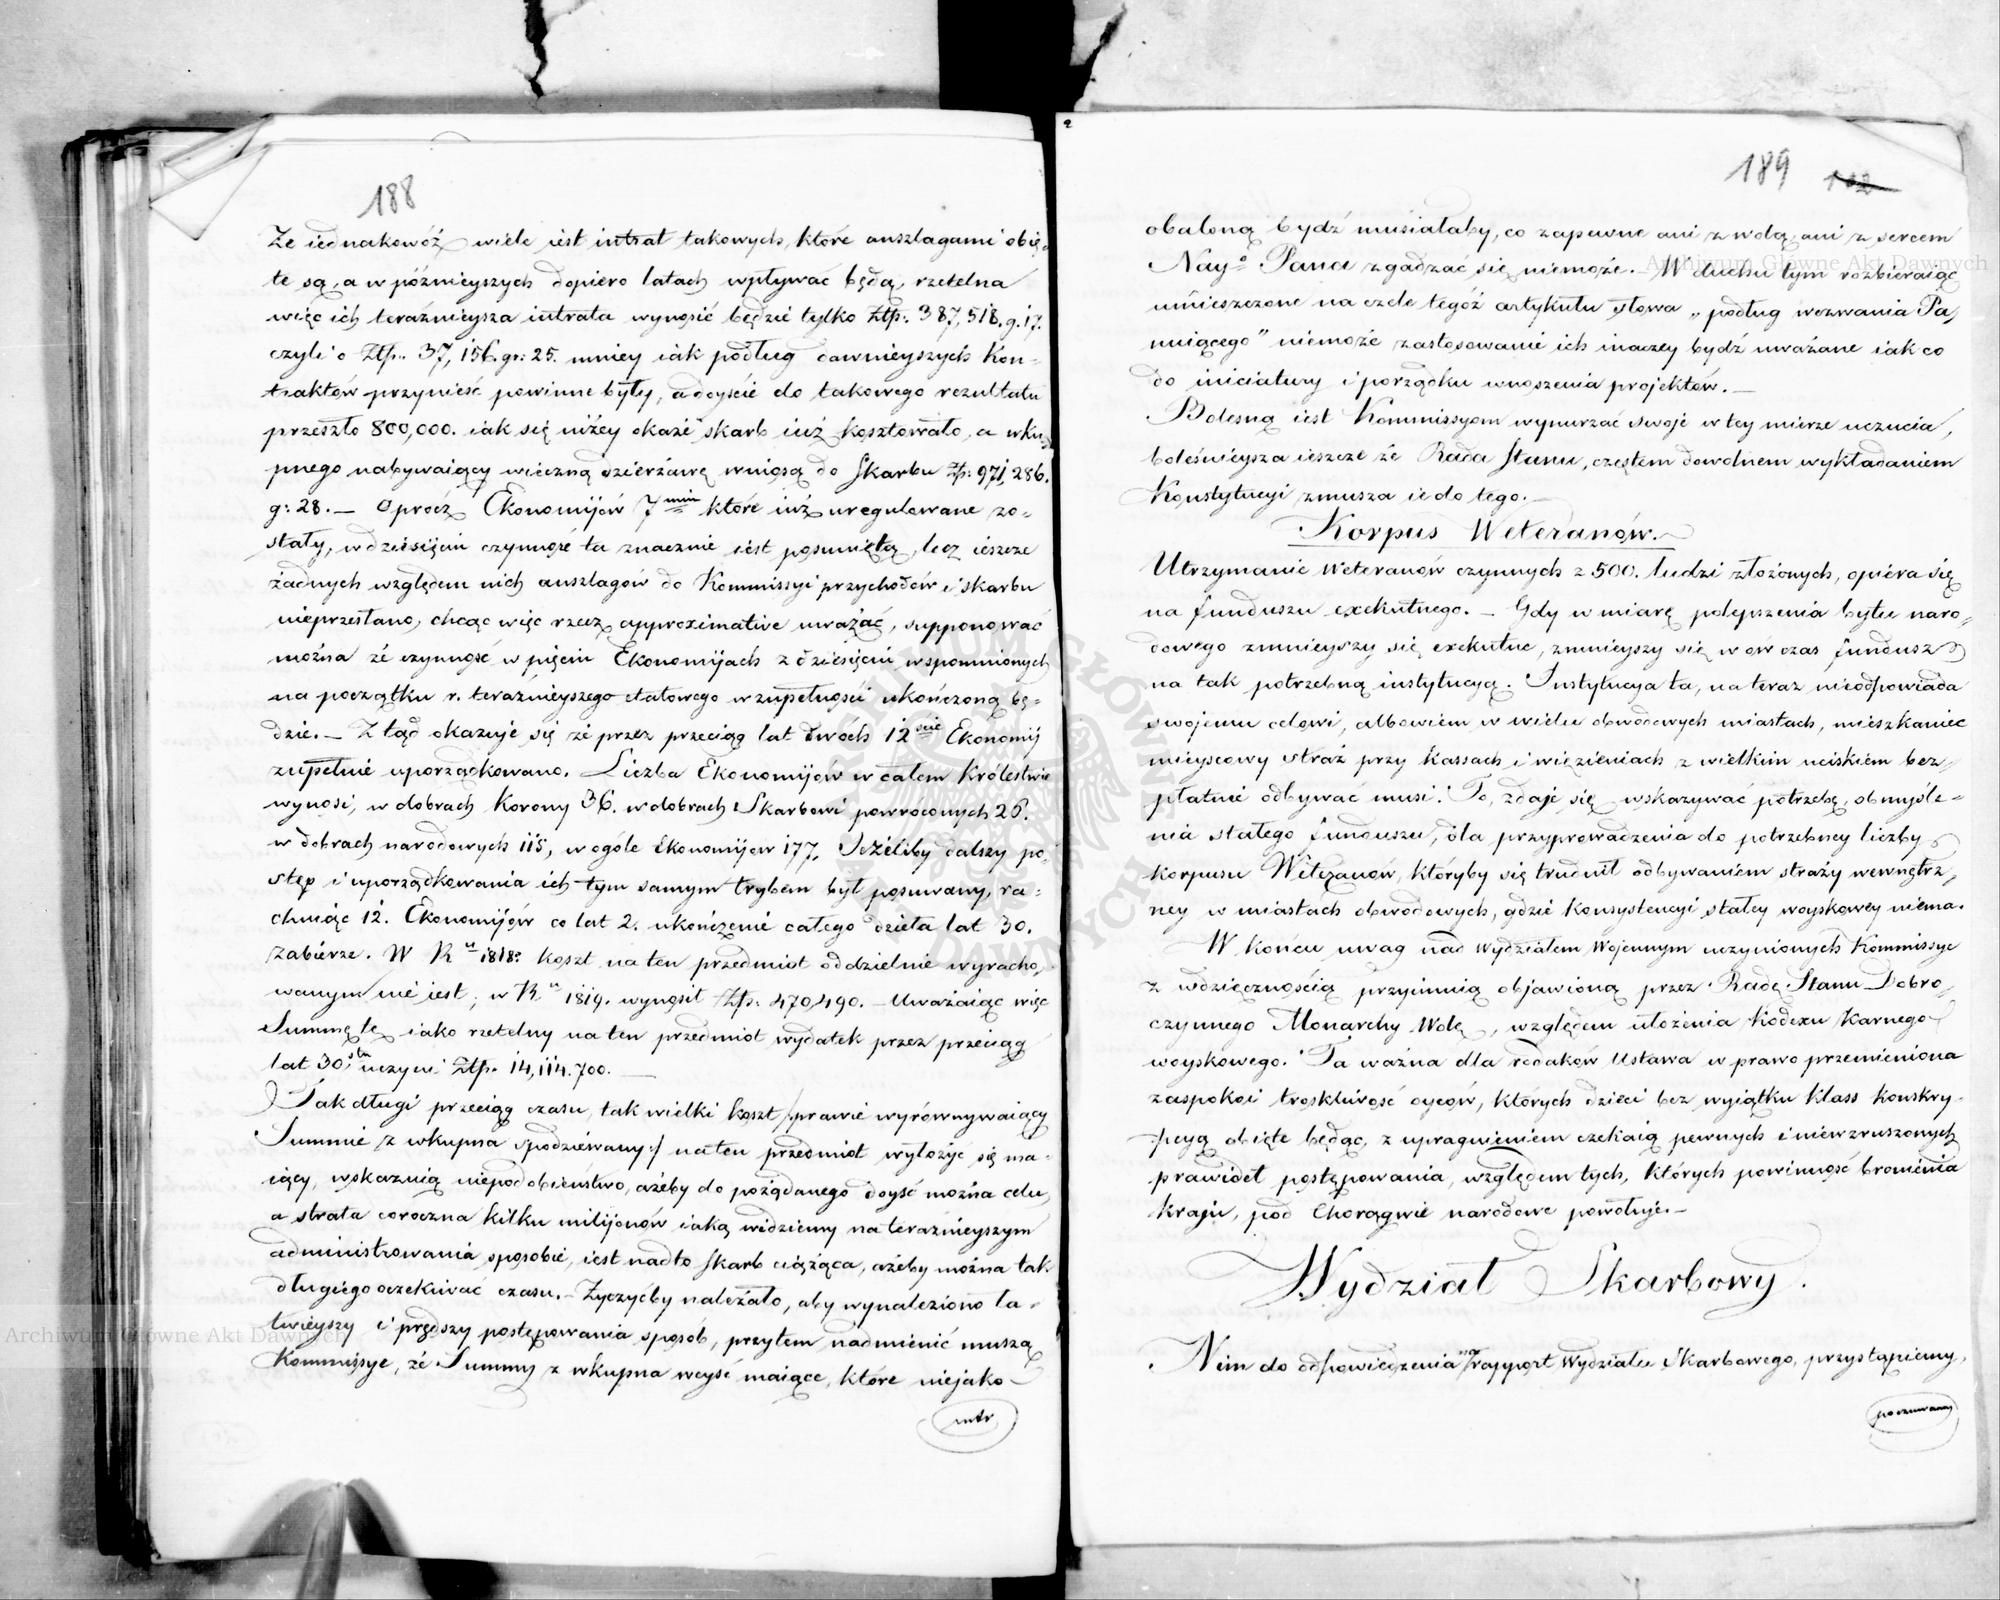 188
Że iednakowoż wiele iest intrat takowych, które anszlagami obię-
te są, a w późnieyszych dopiero latach wpływać będą, rzetelna
więc ich teraźnieysza intrata wynosić będzie tylko Złp: 387,518. g. 17.
czyli o Złp. 37,156. gr: 25. mniey iak podług dawnieyszych kon-
traktów przynieść powinne były, a doyście do takowego rezultatu
przeszło 800,000. iak się niżey okaże skarb iuż kosztowało, a wku-
pnego nabywaiący wieczną dzierżawę wniosą do Skarbu Złp: 971,286.
g: 28. — Oprócz Ekonomijów 7miu które iuż uregulowane zo-
stały, w dziesięciu czynność ta znacznie iest posuniętą, lecz ieszcze
żadnych względem nich anszlagów do Kommissyi przychodów i skarbu
nieprzesłano, chcąc więc rzecz approximative uważać, supponować
można że czynność w pięciu Ekonomijach z dziesięciu wspomnionych
na początku r. teraźnieyszego etatowego w zupełności ukończoną bę-
dzie. — Z tąd okazuje się że przez przeciąg lat dwóch 12ście Ekonomij
zupełnie uporządkowano. Liczba Ekonomijów w całem Królestwie
wynosi, w dobrach Korony 36. w dobrach Skarbowi powróconych 26.
w dobrach narodowych 115, w ogóle Ekonomijow 177. Jeżeliby dalszy po-
stęp i uporządkowania ich tym samym trybem był posuwany, ra-
chuiąc 12. Ekonomijów co lat 2. ukończenie całego dzieła lat 30.
zabierze. W Ru 1818º koszt na ten przedmiot oddzielnie wyracho-
wanym nie iest, w Ru 1819. wynosił Złp: 470,490. — Uważaiąc więc
Summę tę iako rzetelny na ten przedmiot wydatek przez przeciąg
lat 30stu uczyni Złp. 14,114.700. —
Tak długi przeciąg czasu, tak wielki koszt /:prawie wyrównywaiący
Summie z wkupna spodziewany:/ na ten przedmiot wyłożyć się ma-
iący, wskazuią niepodobieństwo, ażeby do pożądanego doyść można celu,
a strata coroczna kilku milijonów iaką widziemy na teraźnieyszym
administrowania sposobie, iest nadto Skarb ciążąca, ażeby można tak
długiego oczekiwać czasu. — Życzyćby należało, aby wynaleziono ła-
twieyszy i prędszy postępowania sposób, przytem nadmienić muszą
Kommissye, że Summy z wkupna weyść maiące, które niejako —
189 102
obaloną bydź musiałaby, co zapewne ani z wolą, ani z sercem
Nayº Pana zgadzać się niemoże. — W duchu tym rozbieraiąc
umieszczone na czele tegoż artykułu słowa „podług wezwania Pa-
nuiącego” niemoże zastosowanie ich inaczey bydź uważane iak co
do iniciatury i porządku wnoszenia projektów. —
Bolesną iest Kommissyom wynurzać swoje w tey mierze uczucia,
boleśnieysza ieszcze że Rada Stanu, częstem dowolnem wykładaniem
Konstytucyi zmusza ie do tego. —
Korpus Weteranów. —
Utrzymanie Weteranów czynnych z 500. ludzi złożonych, opiera się
na funduszu exekutnego. — Gdy w miarę polepszenia bytu naro-
dowego zmnieyszy się exekutne, zmnieyszy się w ów czas fundusz
na tak potrzebną instytucyą. Instytucya ta, na teraz nieodpowiada
swojemu celowi, albowiem w wielu obwodowych miastach, mieszkaniec
mieyscowy straż przy kassach i więzieniach z wielkim uciskiem bez-
płatnie odbywać musi. To, zdaje się wskazywać potrzebę, obmyśle-
nia stałego funduszu, dla przyprowadzenia do potrzebney liczby
korpusu Weteranów, któryby się trudnił odbywaniem straży wewnętrz-
ney w miastach obwodowych, gdzie konsystencyi stałey woyskowey niema.
W końcu uwag nad Wydziałem Wojennym uczynionych Kommissye
z wdzięcznością przyimuią objawioną przez Radę Stanu Dobro-
czynnego Monarchy Wolę, względem ułożenia Kodexu Karnego
woyskowego. Ta ważna dla rodaków Ustawa w prawo przemieniona
zaspokoi troskliwość oyców, których dzieci bez wyiątku klass konskry-
pcyą obięte będąc, z upragnieniem czekaią pewnych i niewzruszonych
prawideł postępowania, względem tych, których powinność bronienia
kraju, pod Chorągwie narodowe powołuje. —
Wydział Skarbowy.
Nim do odpowiedzenia na rapport Wydziału Skarbowego, przystąpiemy,
poczuwamy
Archiwum Główne Akt Dawnych